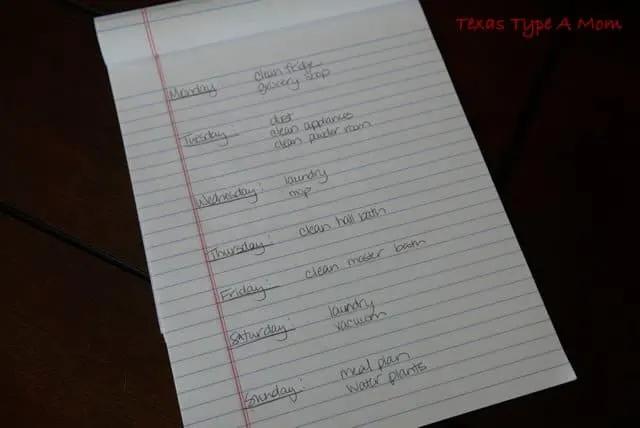 Texas Type A Mom
Monday clean fridge
grocery shop
Tuesday dust
clean appliances
clean powder room
Wednesday: laundry
mop
Thursday: clean hall bath
Friday: clean master bath
Saturday: laundry
vacuum
Sunday: meal plan
water plants